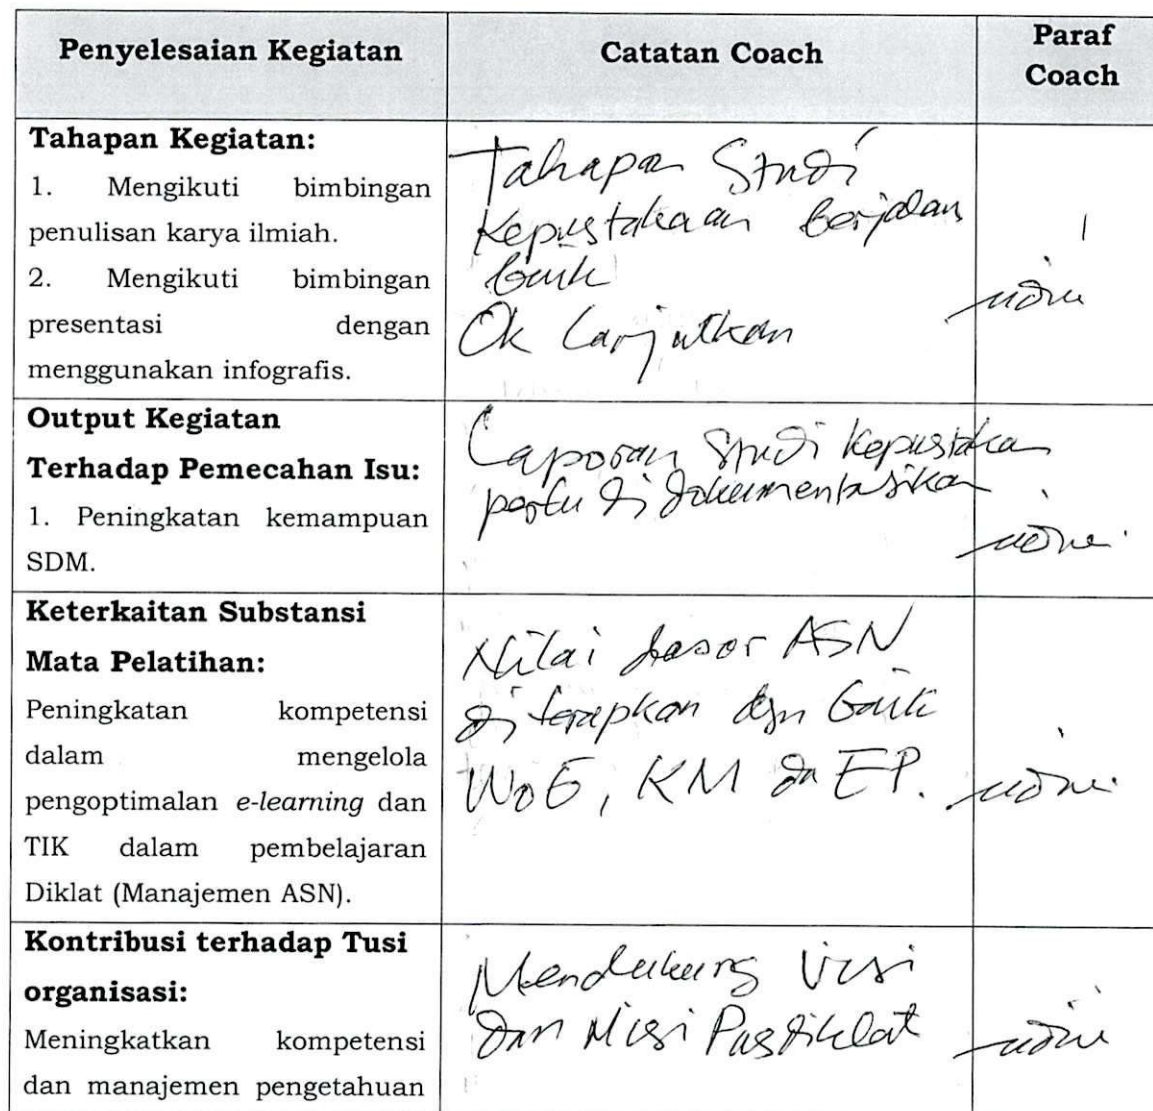 Penyelesaian Kegiatan
Catatan Coach
Paraf
Coach
Tahapan Kegiatan:
1. Mengikuti bimbingan
penulisan karya ilmiah.
2. Mengikuti bimbingan
presentasi dengan
menggunakan infografis.
Tahapan Studi
Kepustakaan berjalan
baik
Ok Lanjutkan
Output Kegiatan
Terhadap Pemecahan Isu:
1. Peningkatan kemampuan
SDM.
Laporan Studi Kepustakaan
perlu di dokumentasikan
Keterkaitan Substansi
Mata Pelatihan:
Peningkatan kompetensi
dalam mengelola
pengoptimalan e-learning dan
TIK dalam pembelajaran
Diklat (Manajemen ASN).
Nilai dasar ASN
di terapkan dgn baik
WoG, KM dan EP.
Kontribusi terhadap Tusi
organisasi:
Meningkatkan kompetensi
dan manajemen pengetahuan
Mendukung Visi
Dan Misi Pusdiklat